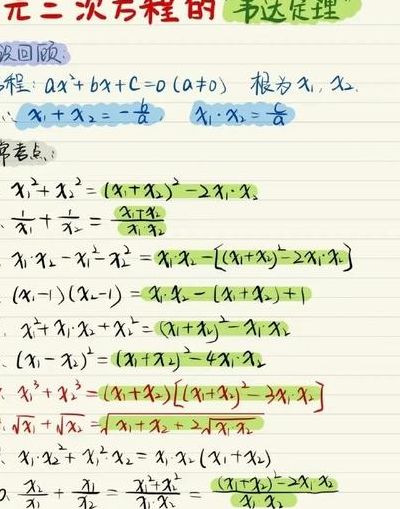 元二次方程的 韦达定理
回顾:
程: ax²+bx+c=0 (a≠0) 根为 x₁, x₂.
∴ x₁+x₂=-b/a, x₁·x₂=c/a
常考点:
x₁²+x₂²=(x₁+x₂)²-2x₁·x₂
1/x₁+1/x₂=(x₁+x₂)/(x₁·x₂)
x₁·x₂-x₁²-x₂²=x₁·x₂-[(x₁+x₂)²-2x₁·x₂]
(x₁-1)(x₂-1)=x₁·x₂-(x₁+x₂)+1
x₁²+x₁·x₂+x₂²=(x₁+x₂)²-x₁·x₂
(x₁-x₂)²=(x₁+x₂)²-4x₁·x₂
x₁³+x₂³=(x₁+x₂)[(x₁+x₂)²-3x₁·x₂]
√x₁+√x₂=√(x₁+x₂+2√(x₁·x₂))
x₁·x₂²+x₁²·x₂=x₁·x₂(x₁+x₂)
x₂/x₁+x₁/x₂=(x₁²+x₂²)/(x₁·x₂)=((x₁+x₂)²-2x₁x₂)/(x₁·x₂)